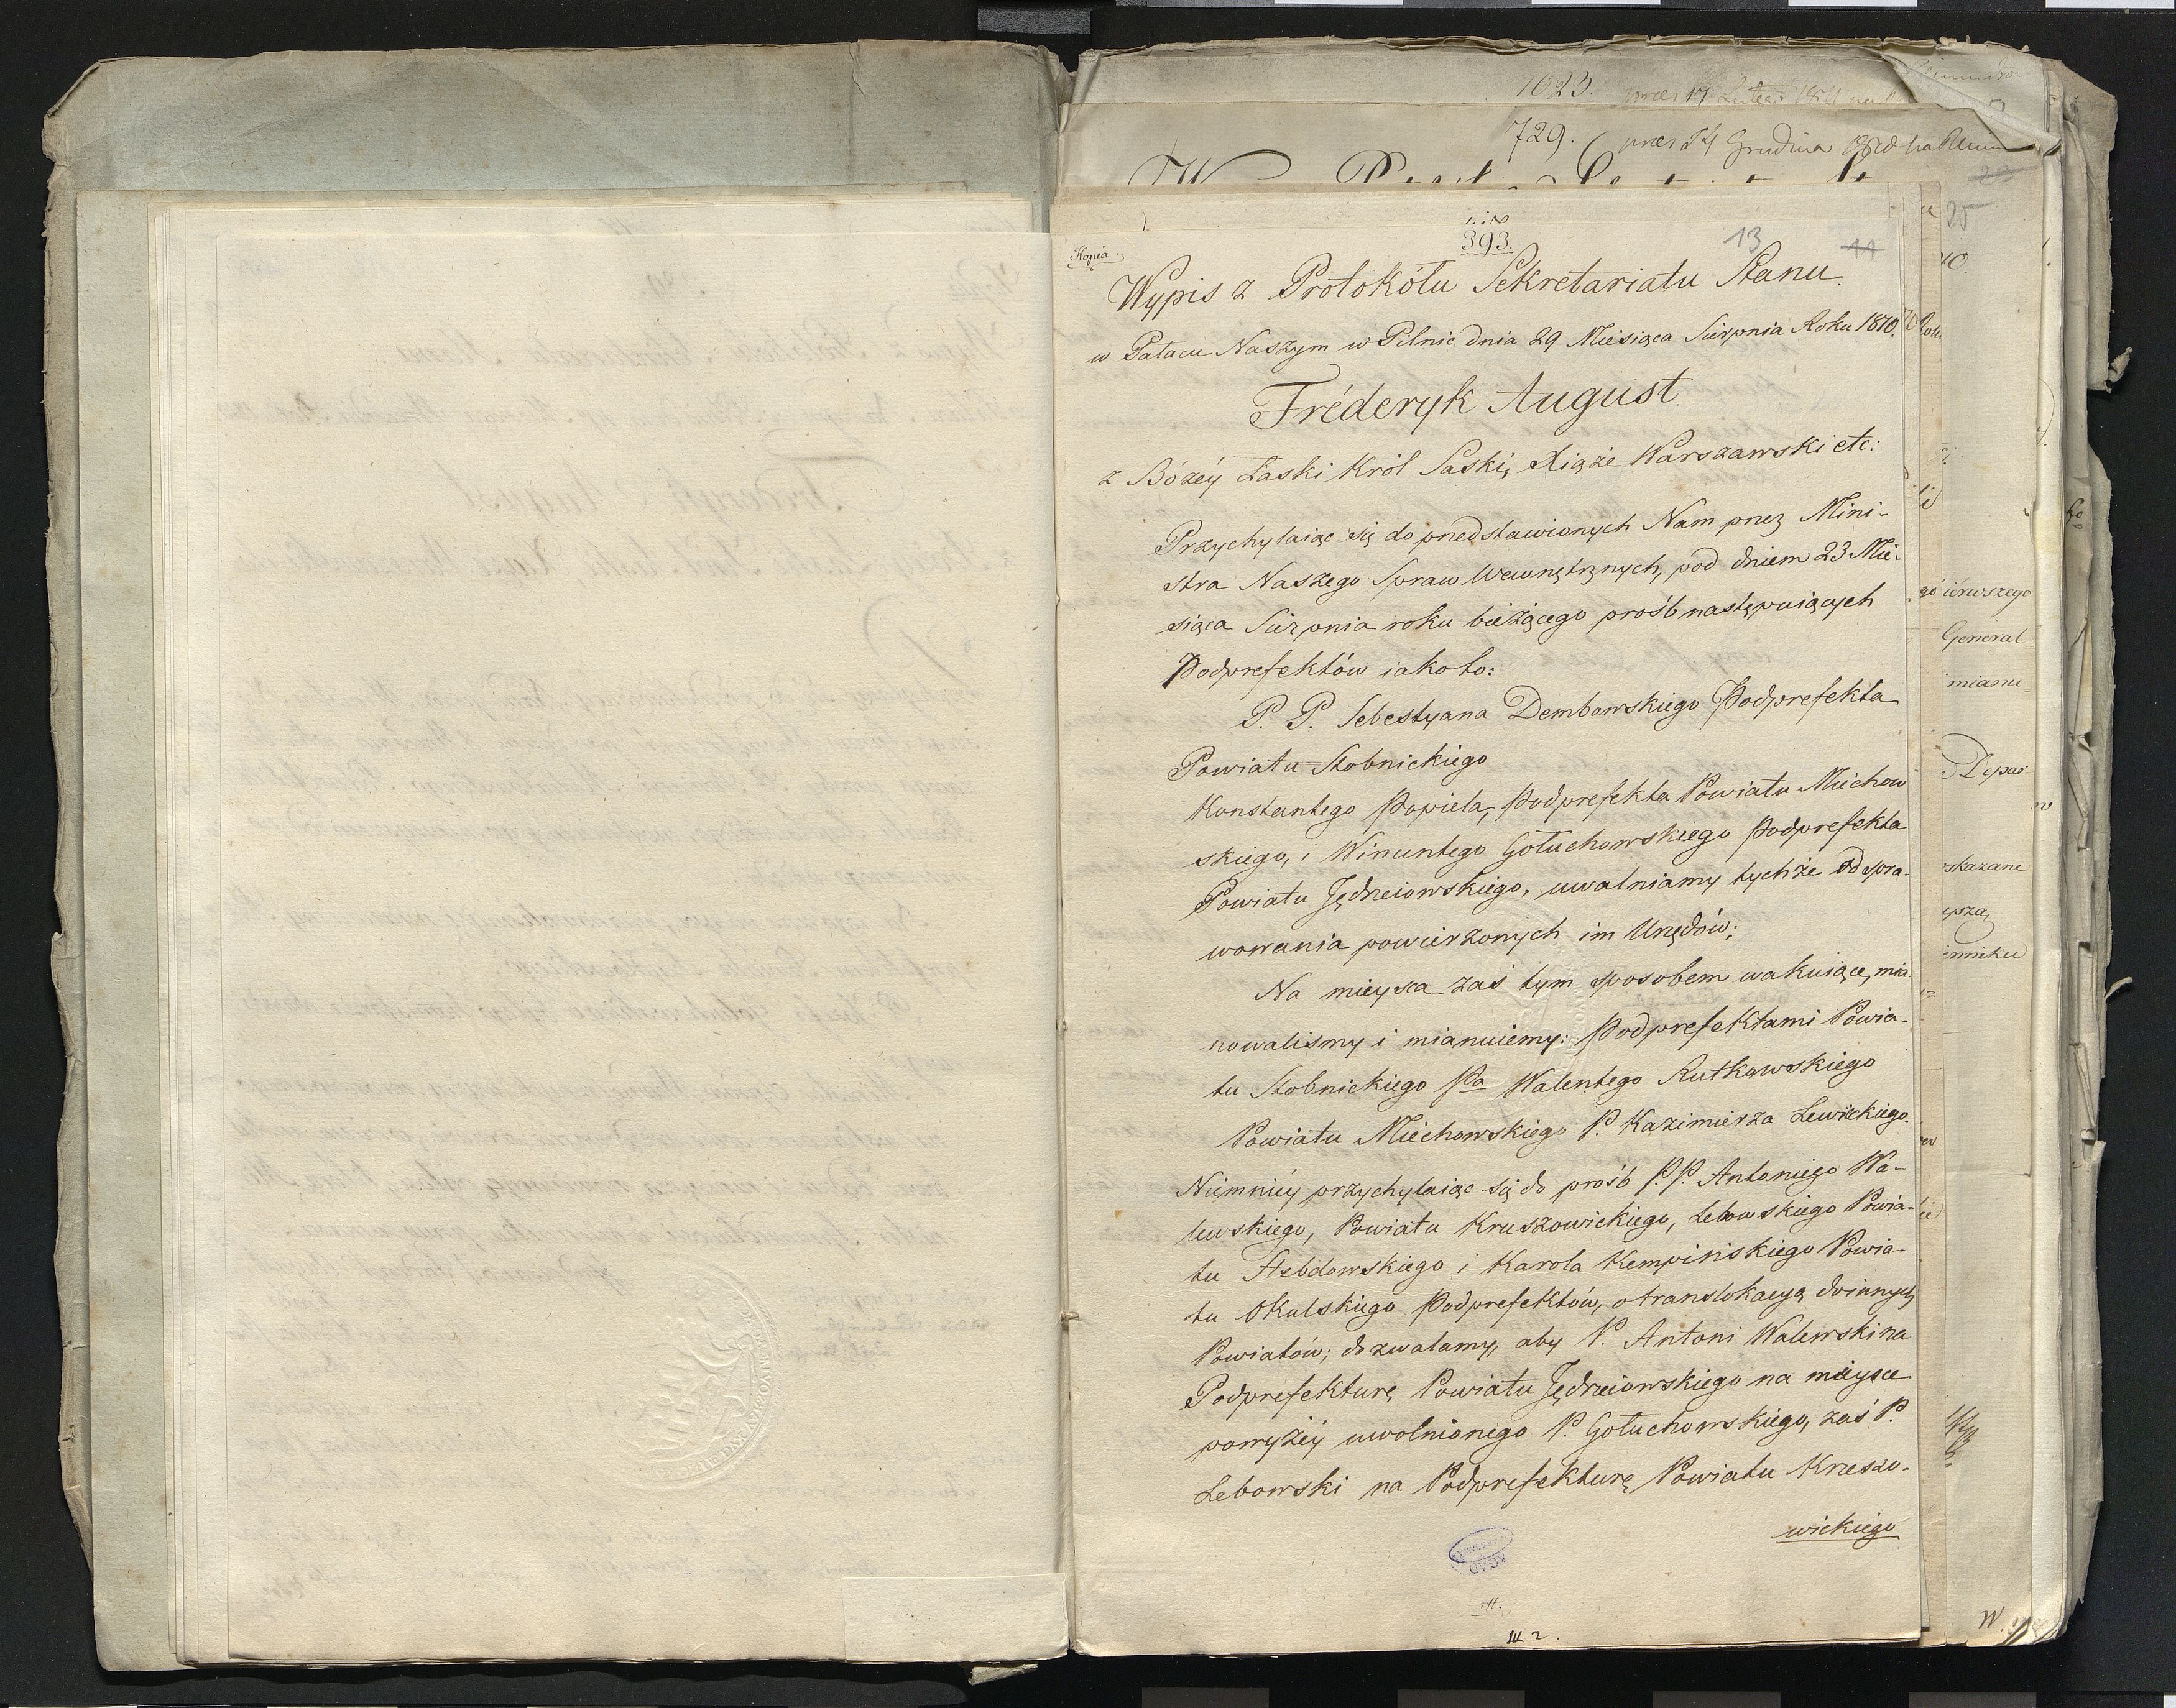 1023.
729.
Grudnia
25
Kopia.
393.
13
11
Wypis z Protokółu Sekretariatu Stanu.
w Pałacu Naszym w Pilnic dnia 29 Miesiąca Sierpnia Roku 1810.
Fréderyk August.
z Bózéy Łaski Król Saski, Xiąże Warszawski etc:
Przychylaiąc się do przedstawionych Nam przez Mini-
stra Naszego Spraw Wewnętrznych, pod dniem 23 Mie-
siąca Sierpnia roku bieżącego prośb następuiących
Podprefektów iako to:
P. P. Sebestyana Dembowskiego Podprefekta
Powiatu Stobnickiego
Konstantego Popiela, Podprefekta Powiatu Miechow
skiego, i Wincentego Gołuchowskiego Podprefekta
Powiatu Jędrzeiowskiego, uwalniamy tychże od spra-
wowania powierzonych im Urzędów;
Na mieysca zaś tym sposobem wakuiące, mia-
nowaliśmy i mianuiemy: Podprefektami Powia-
tu Stobnickiego Pa Walentego Rutkowskiego
Powiatu Miechowskiego P. Kazimierza Lewickiego.
Niemniéy przychylaiąc się do prośb P. P. Antoniego Wa-
lewskiego, Powiatu Kruszowickiego, Lebowskiego Powia-
tu Hebdowskiego i Karola Kempińskiego Powia-
tu Olkulskiego Podprefektów, o translokacyą do innych
Powiatów; dozwalamy, aby P. Antoni Walewski na
Podprefekturę Powiatu Jędrzeiowskiego na mieysce
powyżéy uwolnionego P. Gołuchowskiego, zaś P.
Lebowski na Podprefekturę Powiatu Krzeszo-
wickiego
AGAD
General
mianu
Depar-
skazane